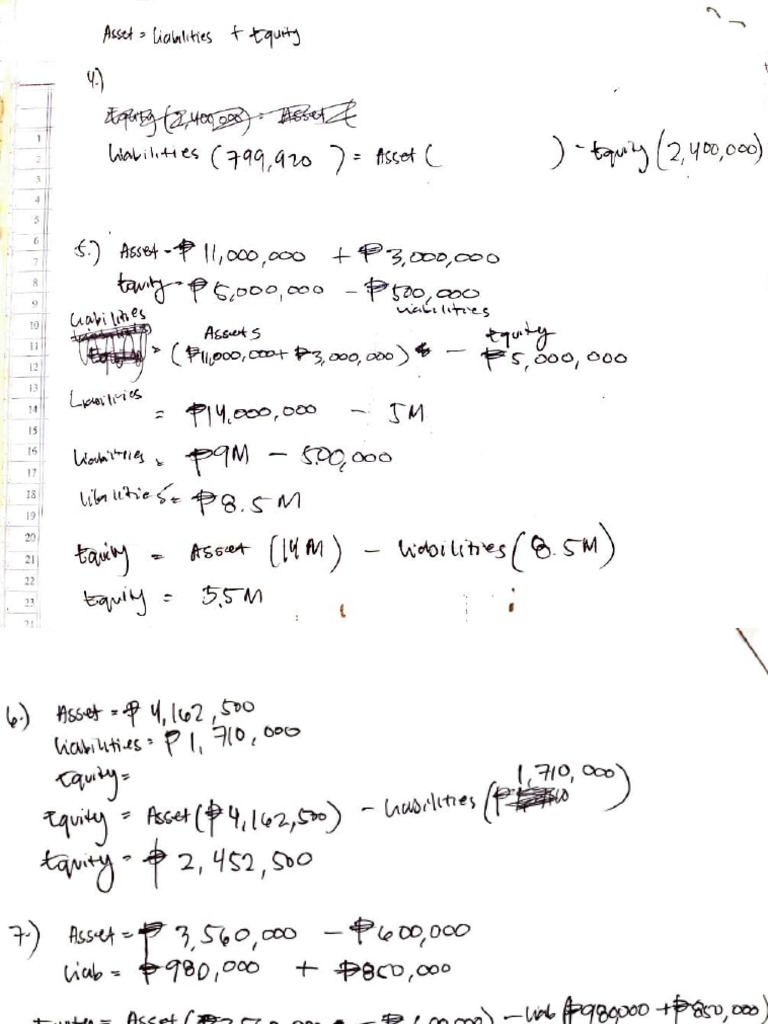 Asset = Liabilities + Equity
4.)
Equity (2,400,000) = Asset
Liabilities (799,920 ) = Asset ( ) - Equity (2,400,000)
5.) Asset - ₱ 11,000,000 + ₱3,000,000
Equity - ₱5,000,000 - ₱500,000
Liabilities
Liabilities Assets Equity
= (₱11,000,000 + ₱3,000,000) - ₱5,000,000
Liabilities
= ₱14,000,000 - 5M
Liabilities = ₱9M - 500,000
Liabilities = ₱8.5M
Equity = Asset (14M) - Liabilities (8.5M)
Equity = 5.5M
1
2
3
4
5
6
7
8
9
10
11
12
13
14
15
16
17
18
19
20
21
22
23
6.) Asset = ₱ 4,162,500
Liabilities = ₱1,710,000
Equity =
1,710,000
Equity = Asset (₱4,162,500) - Liabilities (₱ )
Equity = ₱ 2,452,500
7.) Asset = ₱ 3,560,000 - ₱600,000
Liab = ₱980,000 + ₱850,000
Equity = Asset ( ) - Liab (₱980,000 + ₱850,000)